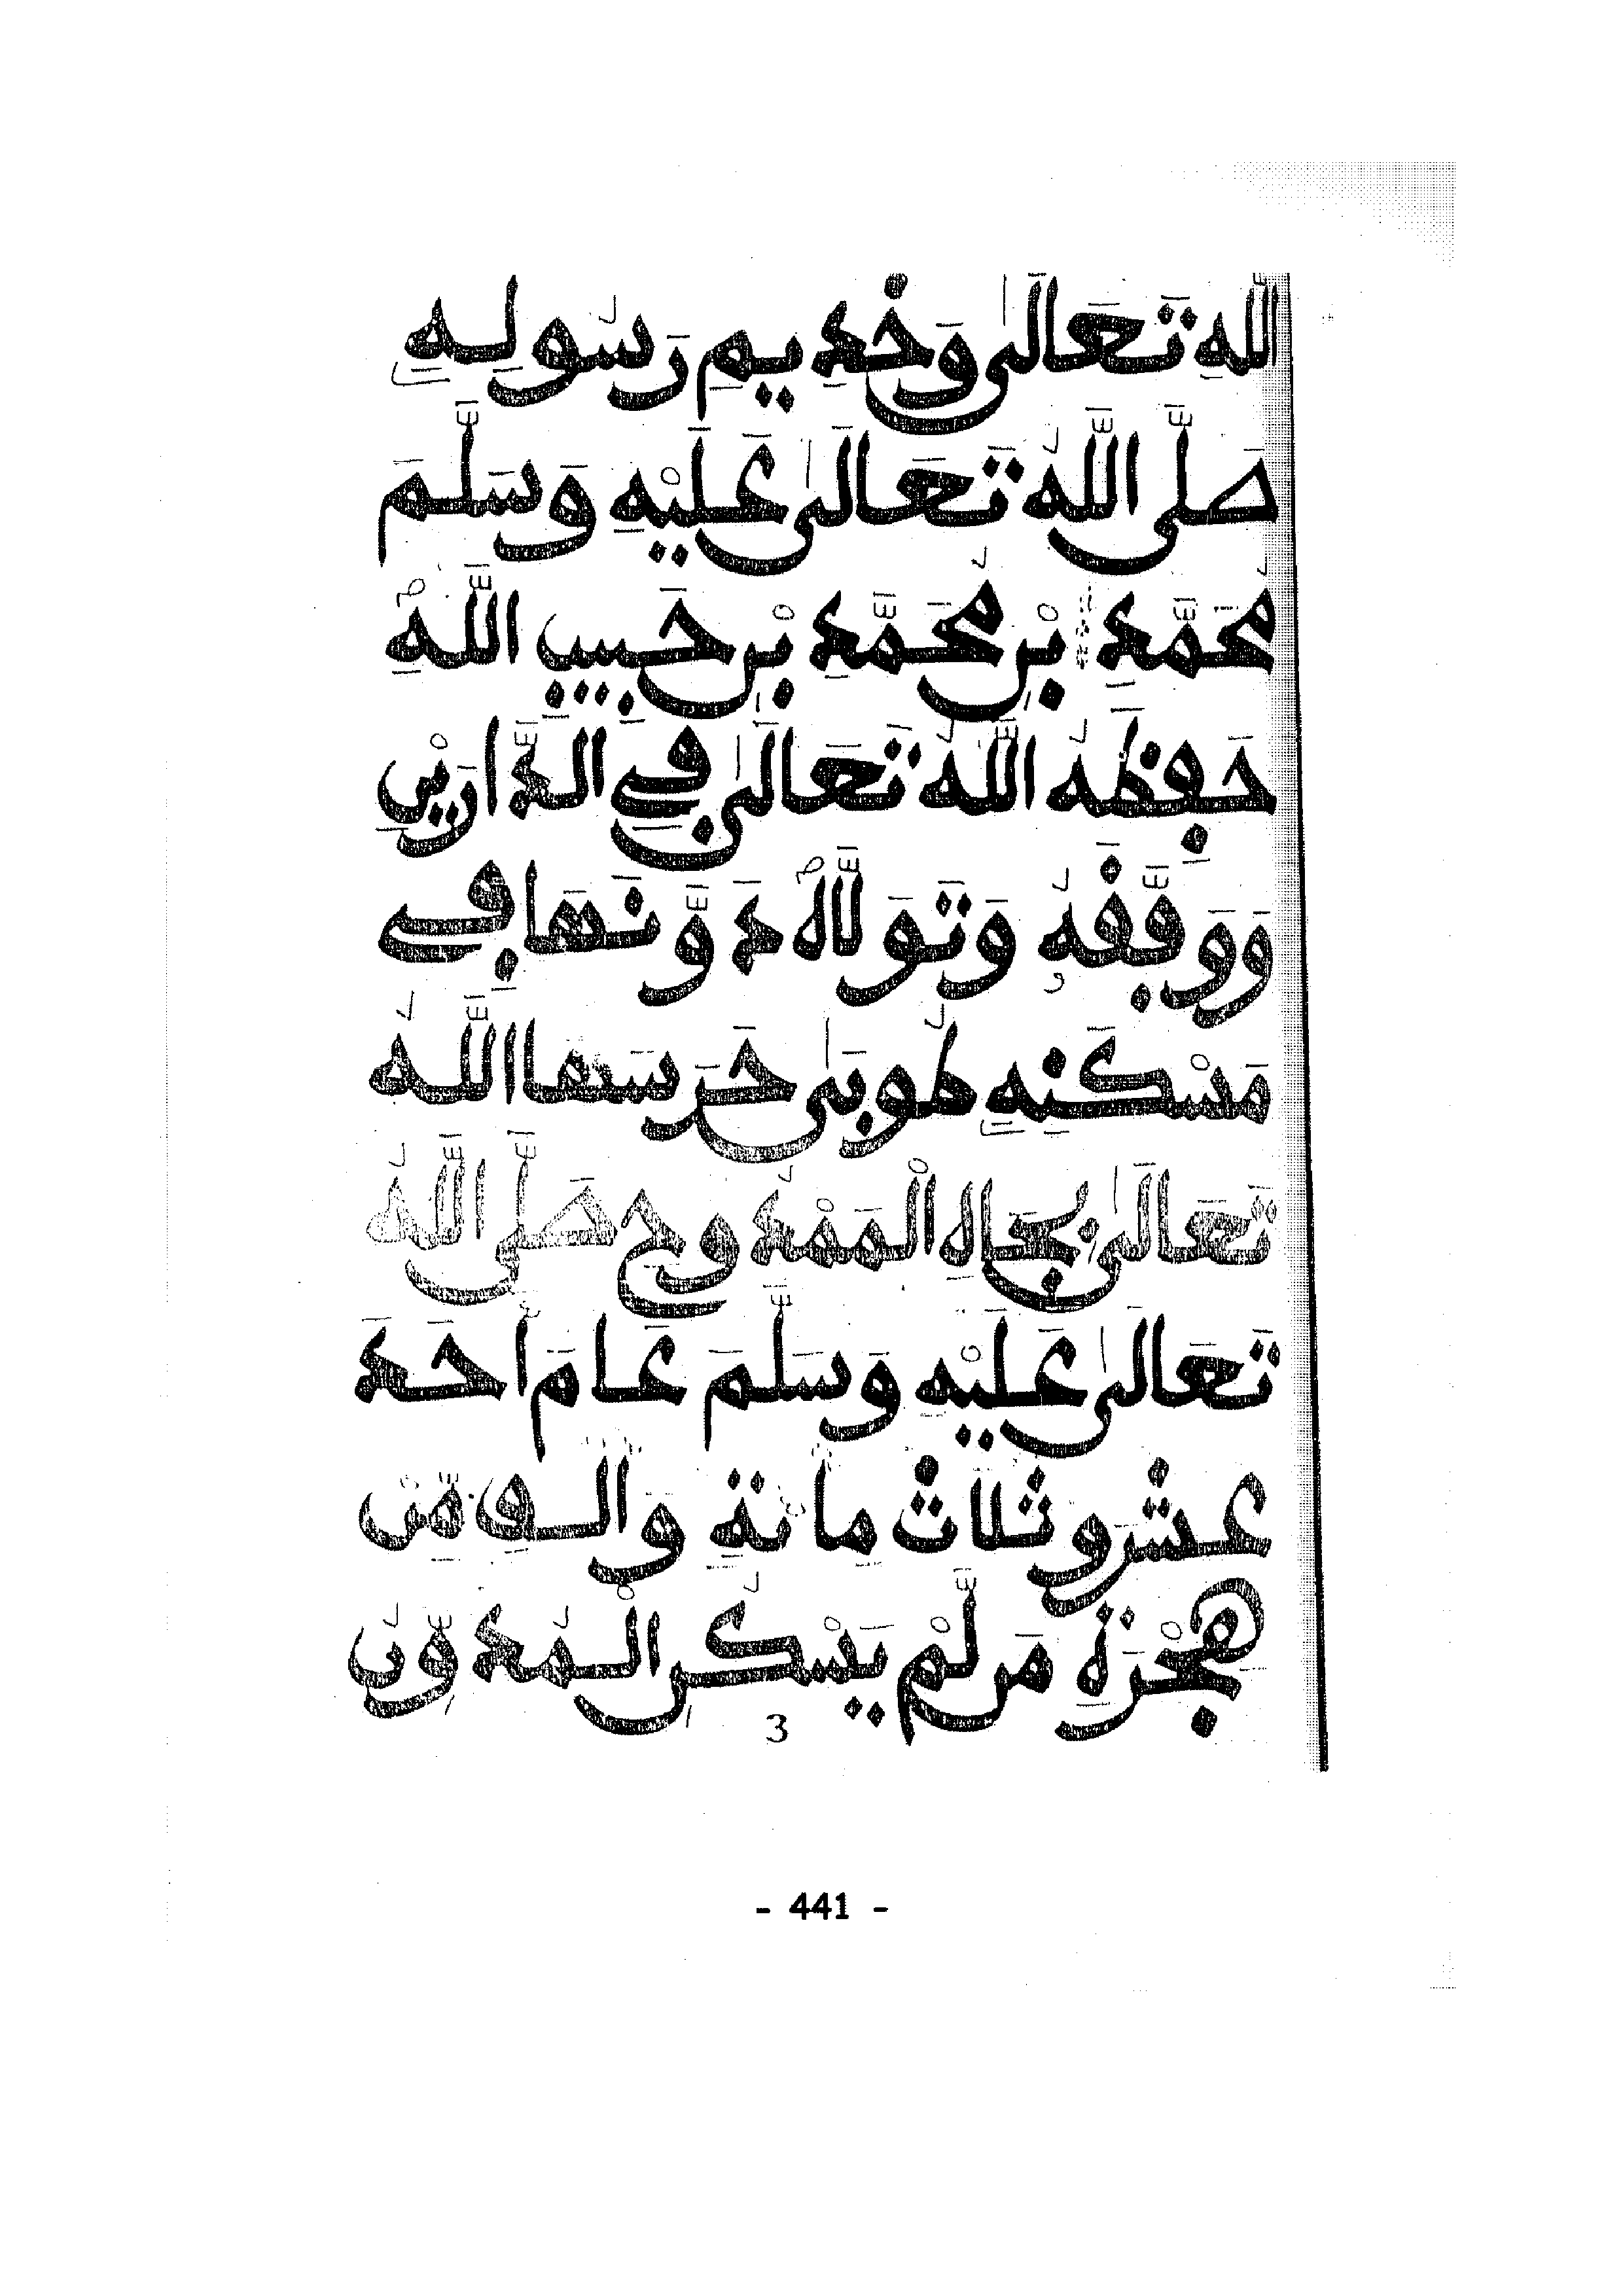 اللَّهِ تَعَالَىٰ وَخَدِيمِ رَسُولِهِ
صَلَّى اللَّهُ تَعَالَىٰ عَلَيْهِ وَسَلَّمَ
مُحَمَّدِ بْنِ مُحَمَّدِ بْنِ حَبِيبِ اللَّهِ
حَفِظَهُ اللَّهُ تَعَالَىٰ فِي الدَّارَيْنِ
وَوَفَّقَهُ وَتَوَلَّاهُ دَوَّنَهَا فِي
مَسْكَنِهِ طُوبَىٰ حَرَسَهَا اللَّهُ
تَعَالَىٰ بِجَاهِ الْمَمْدُوحِ صَلَّى اللَّهُ
تَعَالَىٰ عَلَيْهِ وَسَلَّمَ عَامَ أَحَدَ
عَشَرَ وَثَلَاثِ مِائَةٍ وَأَلْفٍ مِّنْ
هِجْرَةِ مَن لَّمْ يَسْكُنِ الْمُدُوَّنُ
3
- 441 -